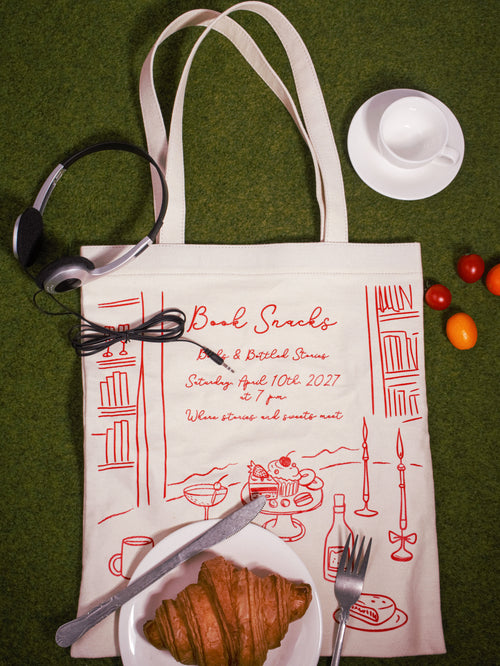 Book Snacks
& Bottled Stories
Saturday, April 10th, 2027
at 7 pm
Where stories and sweets meet